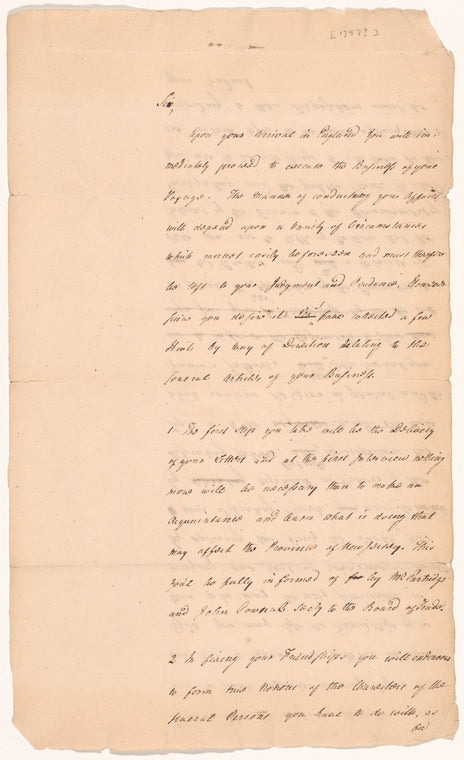 [1757?]
Sir,
Upon your Arrival in England You will im-
mediately proceed to execute the Business of your
Voyage. The manner of conducting your Affairs
will depend upon a Variety of Circumstances
which cannot easily be foreseen and must therefore
be left to your Judgment and Prudence, However
since you desire it I have collected a few
Hints by way of Direction relating to the
several Articles of your Business.
1 The first Step you take will be the Delivery
of your Letters and at the first Interview nothing
more will be necessary than to make an
Acquaintance and learn what is doing that
may affect the Province of New Jersey. This
you'l be fully informed of by Mr. Partridge
and John Pownal Secty to the Board of Trade.
2 In fixing your Friendships you will endeavour
to form true Notions of the Characters of the
several Persons you have to do with, as